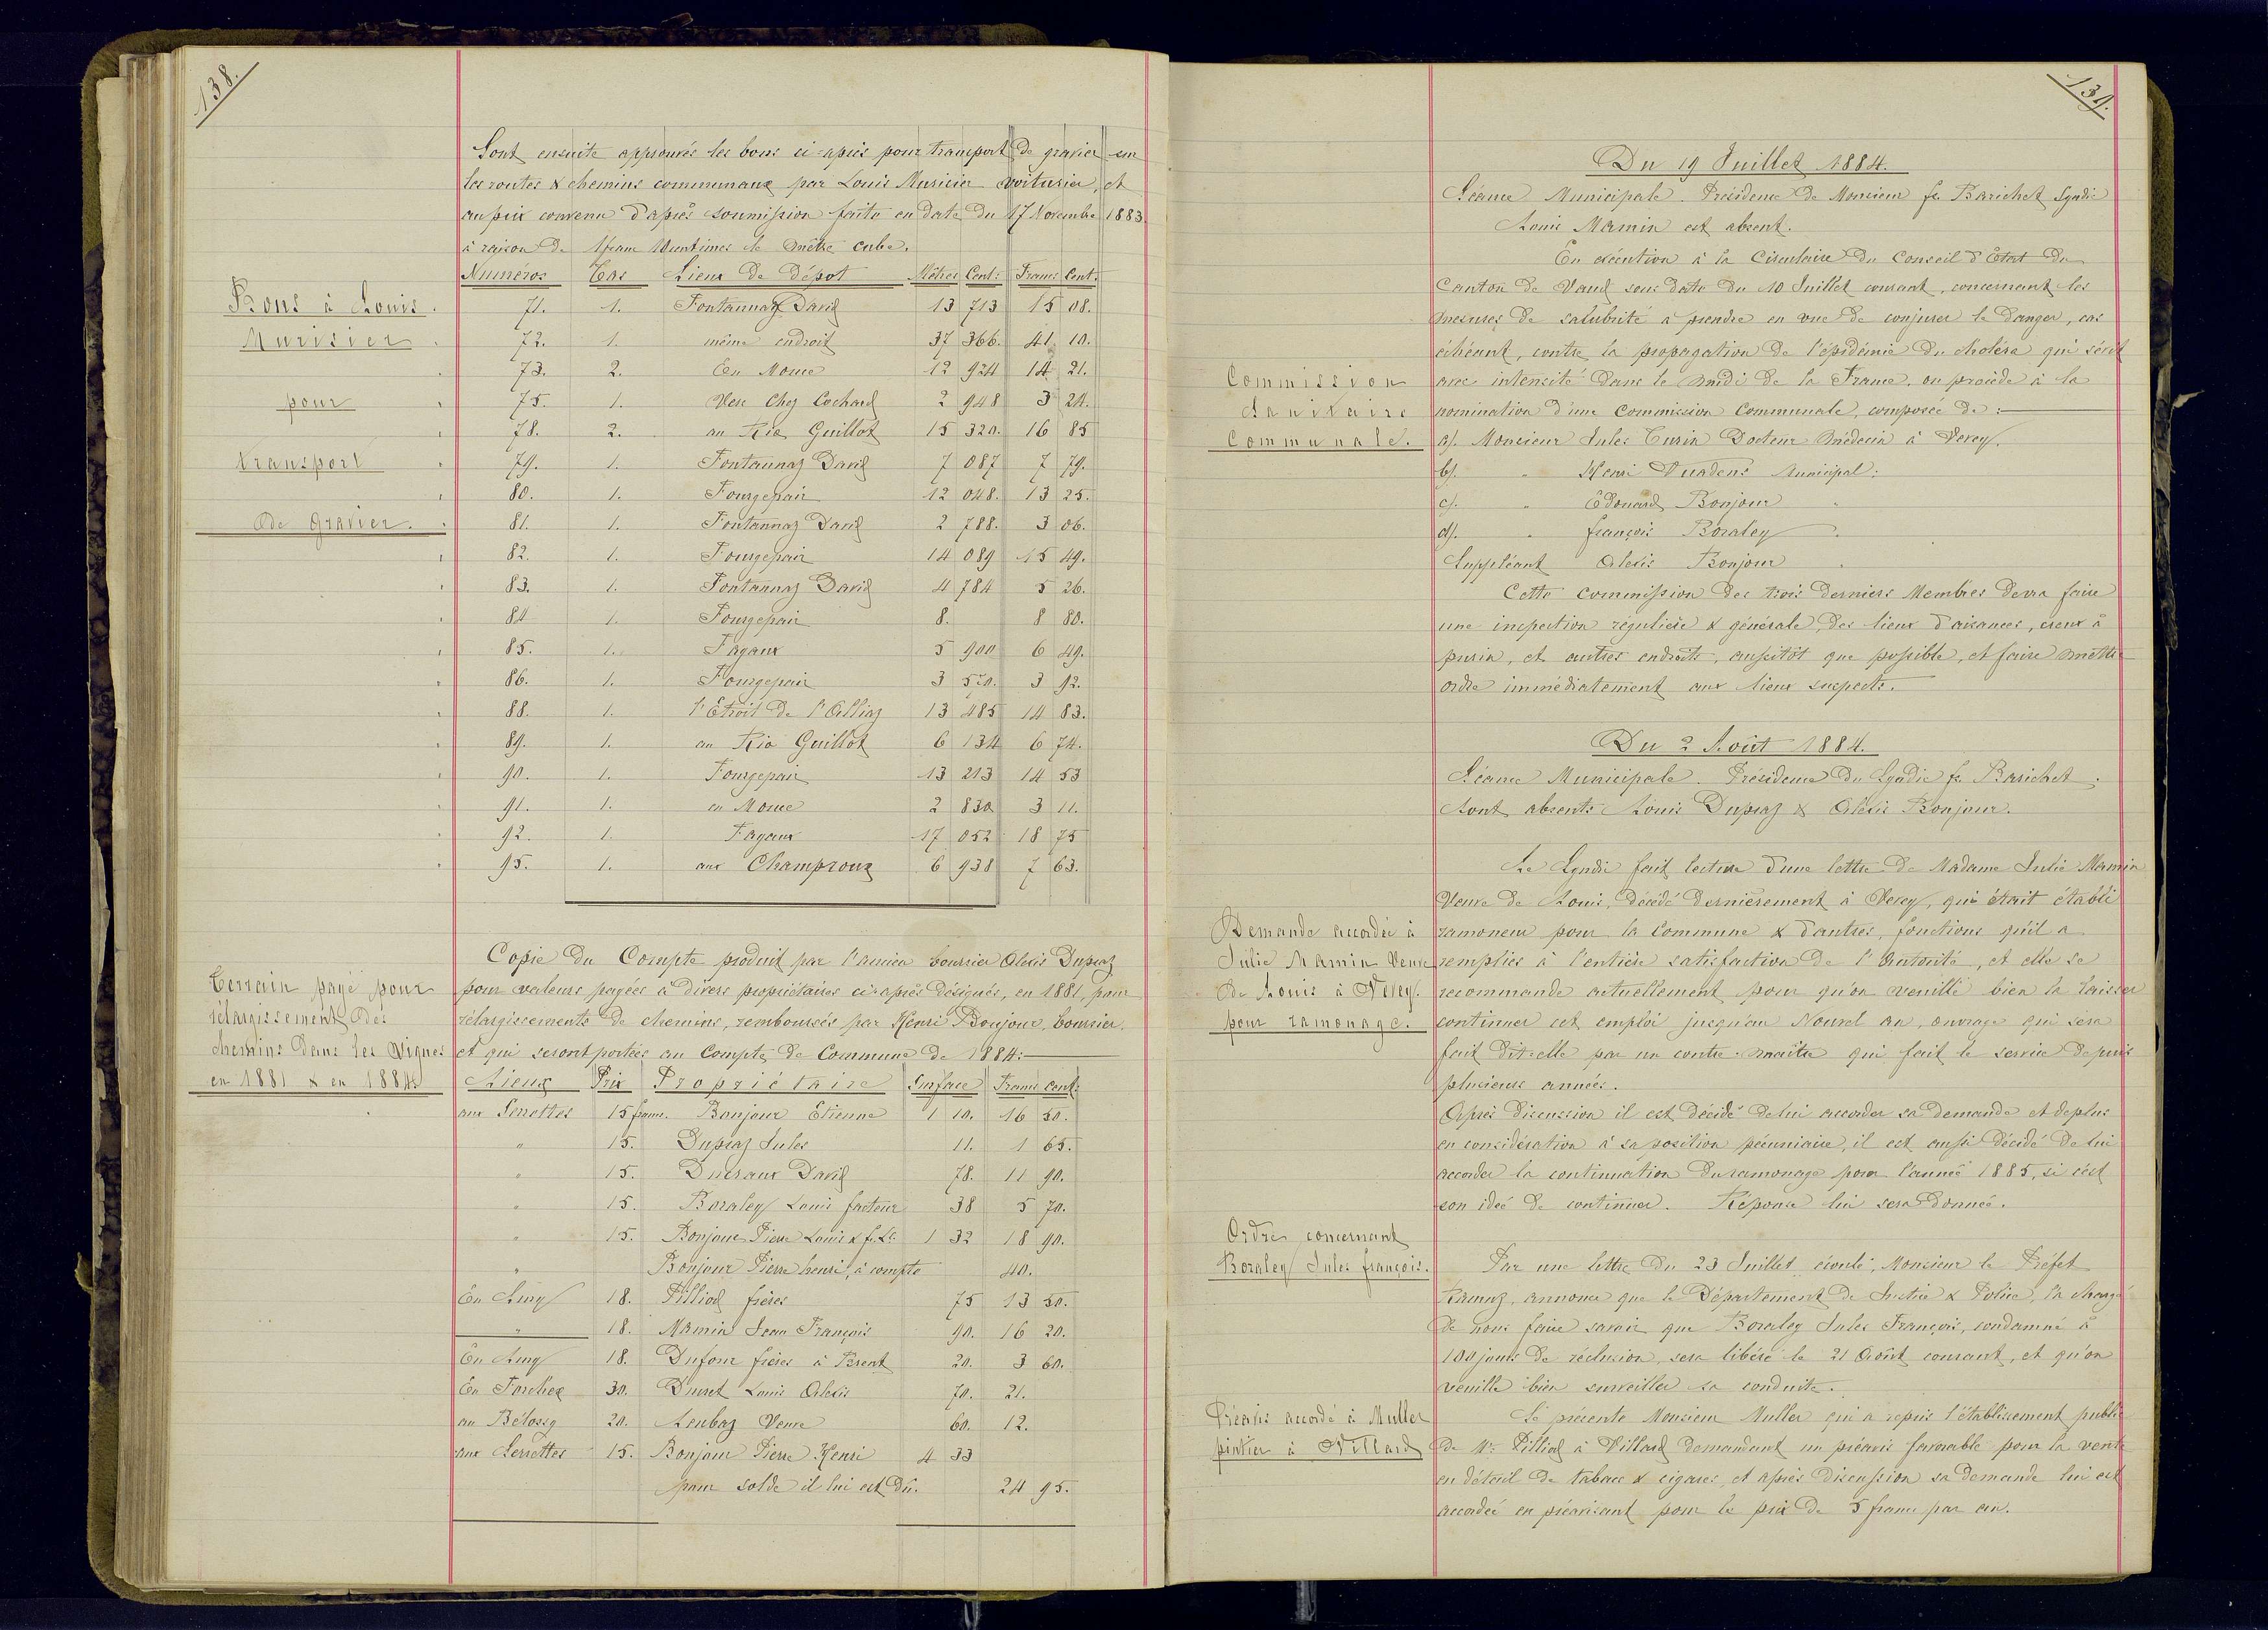 138.
Sont ensuite approuvés les bons ci-après pour transport de gravier sur
les routes & chemins communaux par Louis Murisier voiturier, et
au prix convenu d'après soumission faite en date du 17 Novembre 1883
à raison de 1 franc 10 centimes le mètre cube.
Bons à Louis
Murisier
pour
transport
de gravier.
Numéros Tas Lieux de dépot Mètres Cent: Francs Cent:
71. 1. Fontannaz David 13 713 15 08.
72. 1. même endroit 37 366. 41. 10.
73. 2. En Mouce 12 924 14 21.
75. 1. Vers Chez Cochard 2 948 3 24.
78. 2. au Rio Guillot 15 320. 16 85
79. 1. Fontannaz David 7 087 7 79.
80. 1. Fourgepair 12 048. 13 25.
81. 1. Fontannaz David 2 788. 3 06.
82. 1. Fourgepair 14 089 15 49.
83. 1. Fontannaz David 4 784 5 26.
84 1. Fourgepair 8. 8 80.
85. 1. Fayaux 5 900 6 49.
86. 1. Fourgepair 3 570. 3 92.
88. 1. l'Etroit de l'Alliaz 13 485 14 83.
89. 1. au Rio Guillot 6 134 6 74.
90. 1. Fourgepair 13 213 14 53
91. 1. en Mouce 2 830 3 11.
92. 1. Fayaux 17 052 18 75
95. 1. aux Champroux 6 938 7 63.
Terrain payé pour
rélargissement des
chemins dans les Vignes
en 1881 & en 1884.
Copie du Compte produit par l'ancien boursier Alexis Dupraz
pour valeurs payées à divers propriétaires ci-après désignés, en 1881, pour
rélargissements de chemins, remboursés par Henri Bonjour, boursier.
et qui seront portées au Compte de Commune de 1884:
Lieux Prix Propriétaire Surface Francs cent:
aux Serrettes 15 francs. Bonjour Etienne 1 10. 16 50.
" 15. Dupraz Jules 11. 1 65.
" 15. Ducraux David 78. 11 90.
" 15. Boraley Louis facteur 38 5 70.
" 15. Bonjour Pierre Louis & fs. Ls. 1 32 18 90.
" Bonjour Pierre henri, à compte 40.
En Lung 18. Pilliod frères 75 13 50.
" 18. Mamin Jean François 90. 16 20.
En Lung 18. Dufour frères à Brent 20. 3 60.
En Forchex 30. Duret Louis Alexis 70. 21.
au Bélossy 20. Leubaz Veuve 60. 12.
aux Serrettes 15. Bonjour Pierre Henri 4 33
pour solde il lui est dû. 24 95.
139.
Du 19 Juillet 1884.
Séance Municipale. Présidence de Monsieur fs. Barichet Syndic
Louis Mamin est absent.
En exécution à la Circulaire du Conseil d'Etat du
Canton de Vaud sous date du 10 Juillet courant, concernant les
mesures de salubrité à prendre en vue de conjurer le danger, cas
échéant, contre la propagation de l'épidémie du choléra qui sévit
Commission
Sanitaire
Communale.
avec intensité dans le midi de la France, on procède à la
nomination d'une Commission Communale, composée de:
a/. Monsieur Jules Curin Docteur médecin à Vevey.
b/. " Henri Vuadens Municipal.
c/. " Edouard Bonjour "
d/. " françois Boraley "
Suppléant Alexis Bonjour "
Cette commission des trois derniers Membres devra faire
une inspection régulière & générale, des lieux d'aisances, creux à
purin, et autres endroits, aussitôt que possible, et faire mettre
ordre immédiatement aux lieux suspects.
Du 2 Août 1884.
Séance Municipale. Présidence du Syndic fs. Barichet.
Sont absents Louis Dupraz & Alexis Bonjour.
Le Syndic fait lecture d'une lettre de Madame Julie Mamin
Veuve de Louis, décédé dernièrement à Vevey, qui était établi
Demande accordée à
Julie Mamin Veuve
de Louis à Vevey.
pour ramonage.
ramoneur pour la Commune & d'autres, fonctions qu'il a
remplies à l'entière satisfaction de l'Autorité, et elle se
recommande actuellement pour qu'on veuille bien la laisser
continuer cet emploi jusqu'au Nouvel an, ouvrage qui sera
fait dit-elle par un contre-maître qui fait le service depuis
plusieurs années.
Après discussion il est décidé de lui accorder sa demande et de plus
en considération à sa position pécuniaire, il est aussi décidé de lui
accorder la continuation du ramonage pour l'année 1885, si c'est
son idée de continuer. Réponse lui sera donnée.
Ordre concernant
Boraley Jules françois.
Par une lettre du 23 Juillet écoulé, Monsieur le Préfet
annonce que le Département de Justice & Police, l'a chargé
de nous faire savoir que Boraley Jules François, condamné à
100 jours de réclusion, sera libéré le 21 Août courant, et qu'on
veuille bien surveiller sa conduite.
Préavis accordé à Muller
pintier à Villard
Se présente Monsieur Muller qui a repris l'établissement public
de Mr. Pilliod à Villard demandant un préavis favorable pour la vente
en détail de tabacs & cigares, et après discussion sa demande lui est
accordée en préavisant pour le prix de 5 francs par an.